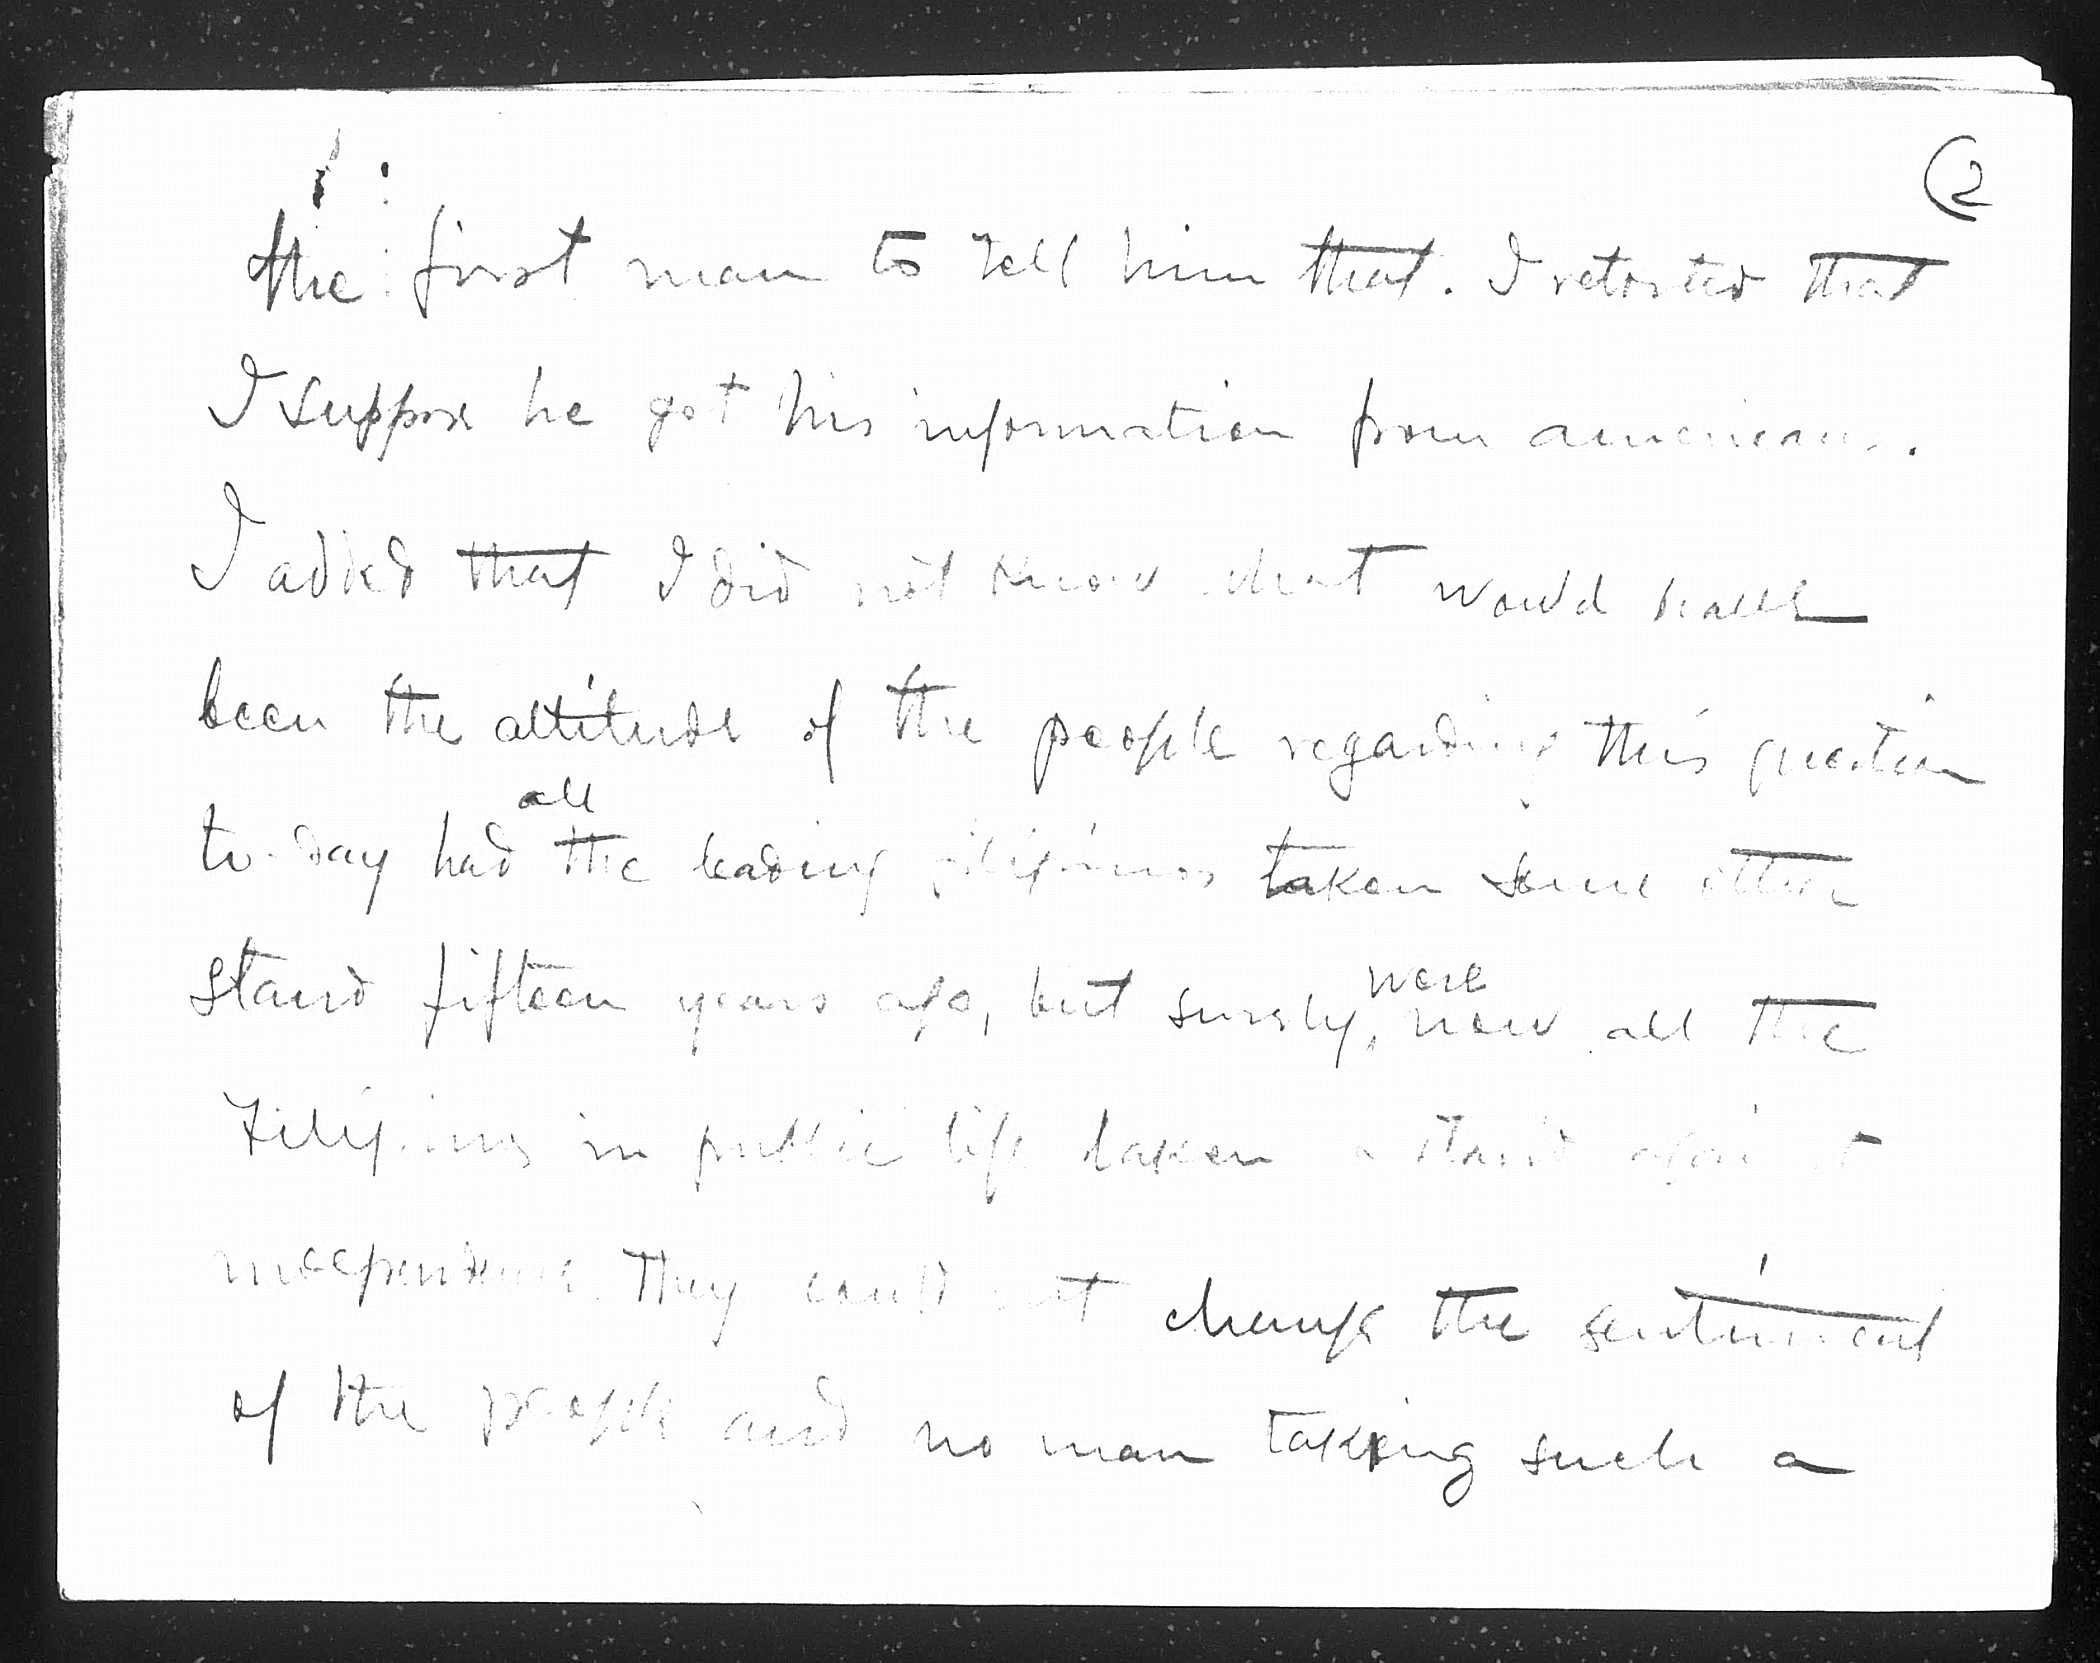 (2
the first man to tell him that. I retorted that
I suppose he got his information from americans.
I added that I did not know what would have
been the attitude of the people regarding this question
to-day had all the leading filipinos taken some other
stand fifteen years ago, but surely, were now all the
Filipinos in public life taken a stand against
independence. They could not change the sentiment
of the people and no man taking such a